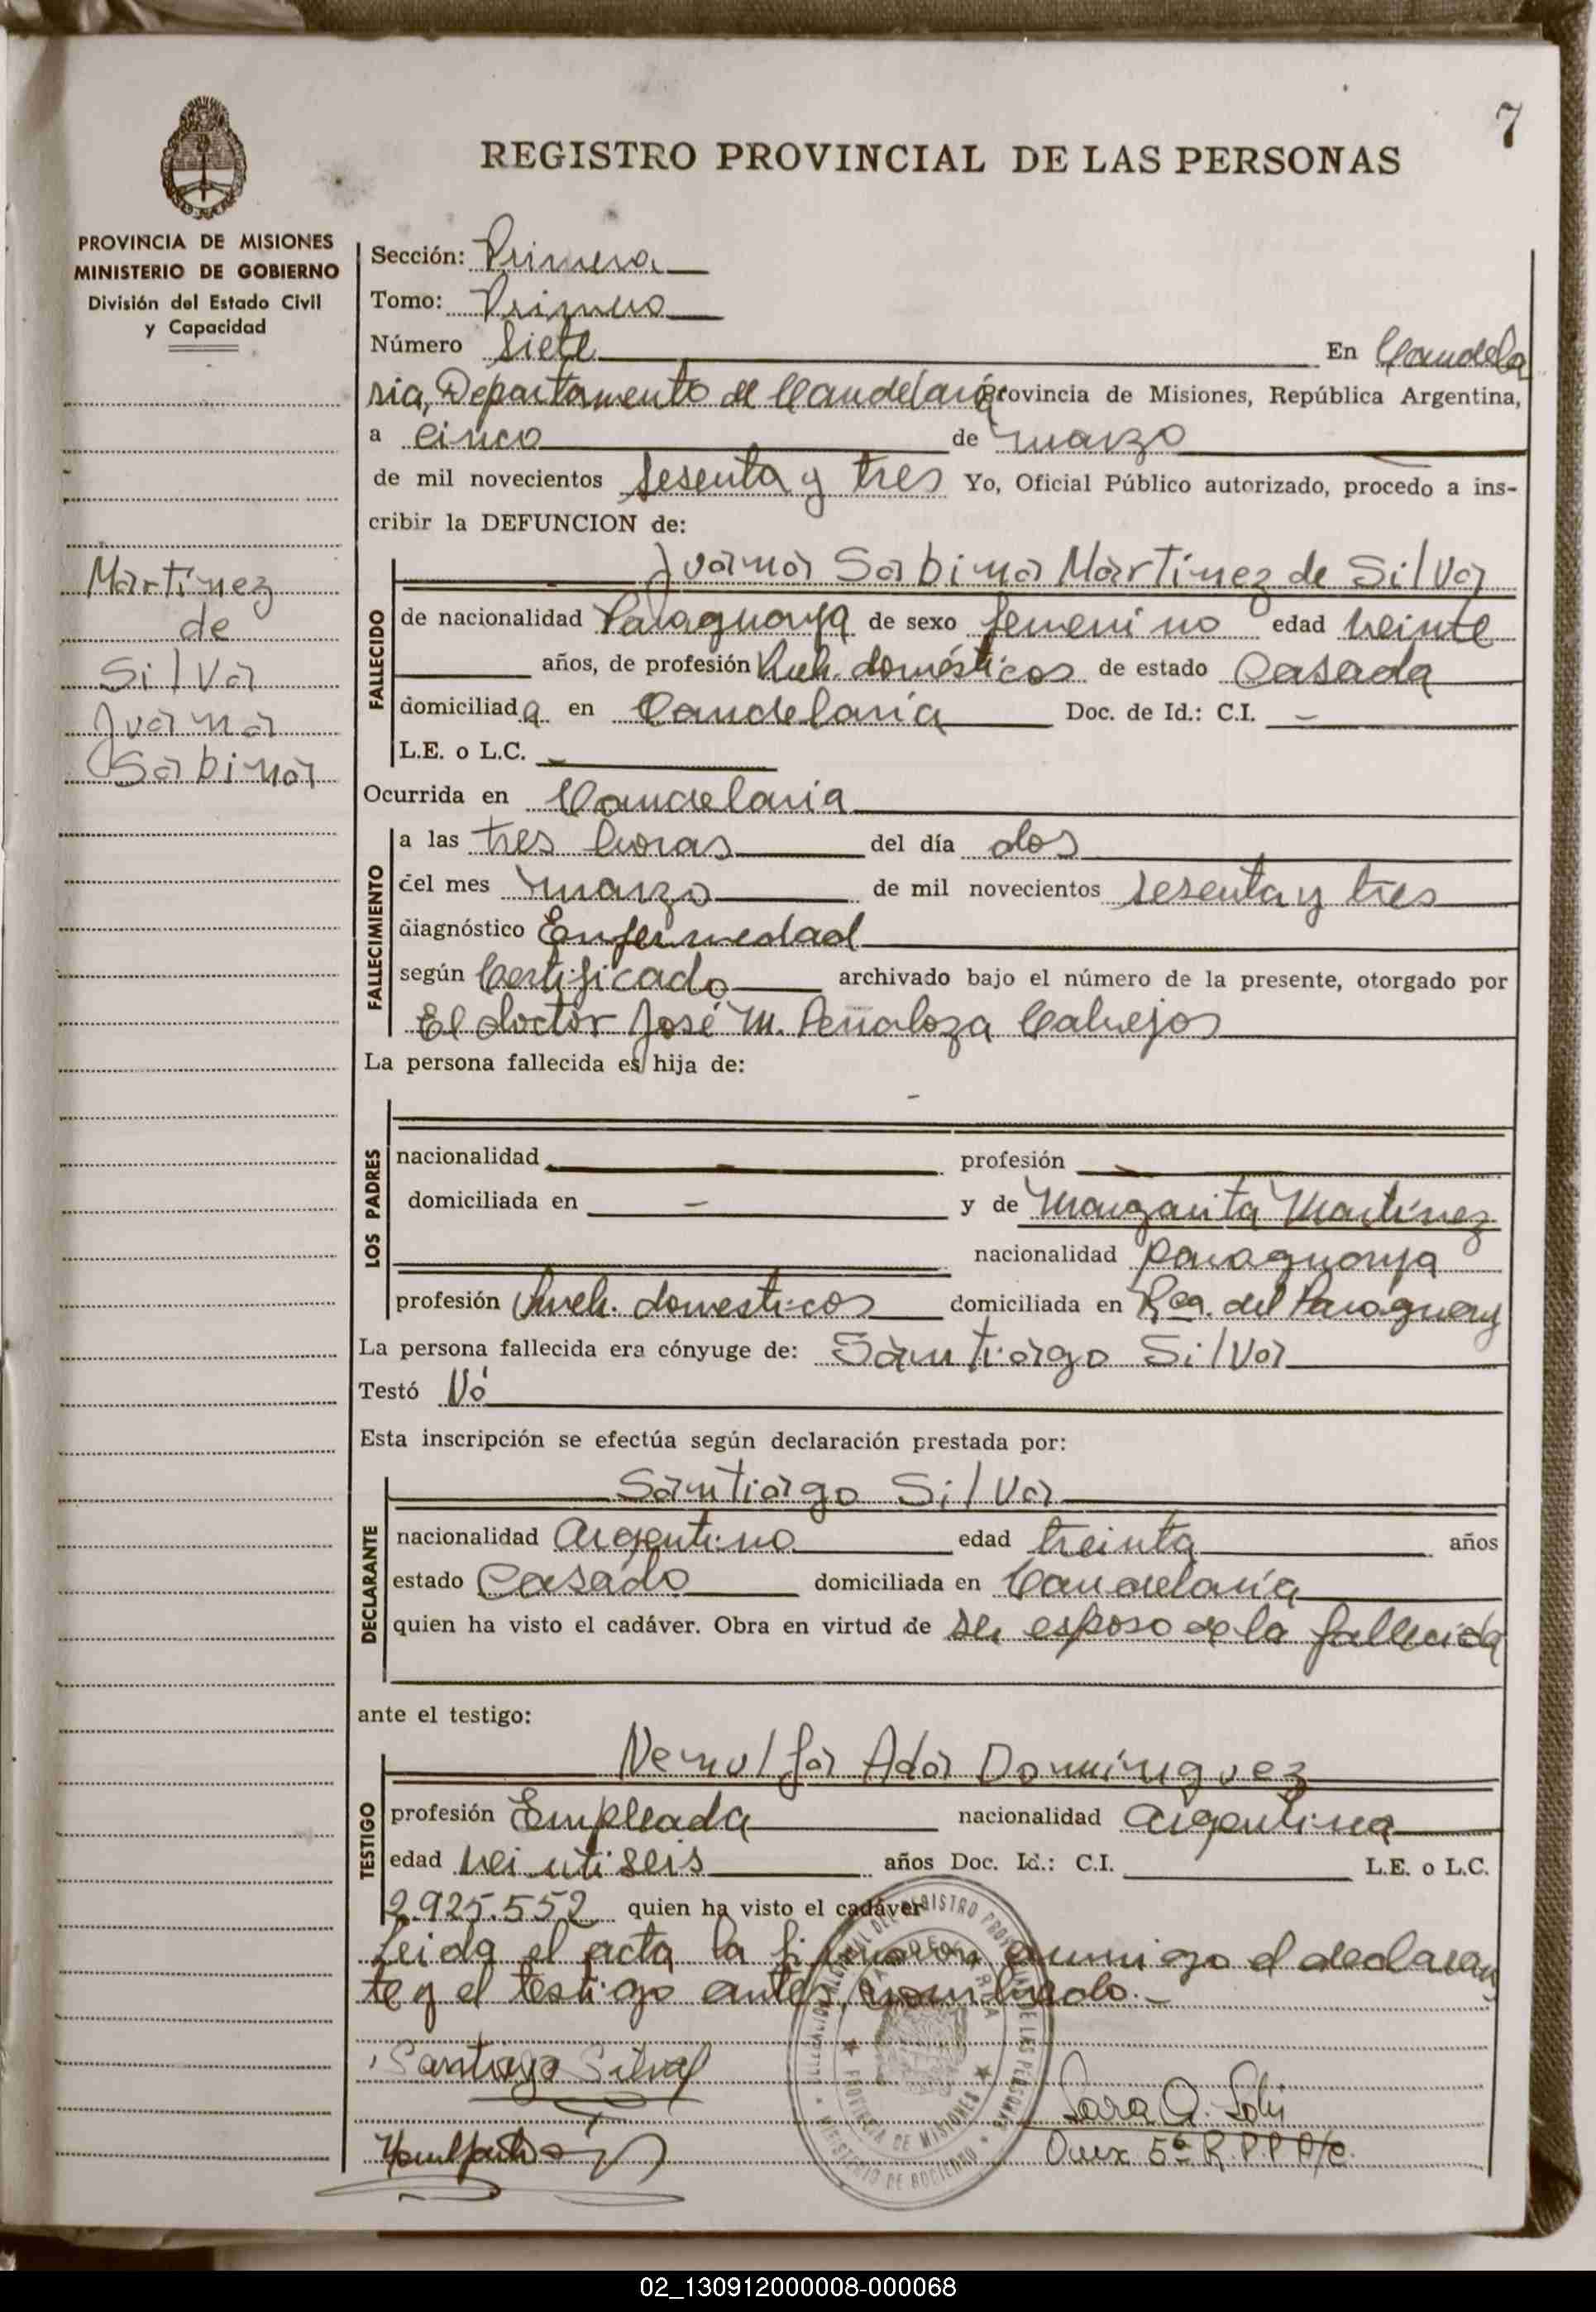 7
REGISTRO PROVINCIAL DE LAS PERSONAS
PROVINCIA DE MISIONES
MINISTERIO DE GOBIERNO
División del Estado Civil
y Capacidad
Martínez
de
Silva
Juana
Sabina
Sección: Primera
Tomo: Primero
Número Siete En Candela
ria, Departamento de Candelaria Provincia de Misiones, República Argentina,
a cinco de marzo
de mil novecientos sesenta y tres Yo, Oficial Público autorizado, procedo a ins-
cribir la DEFUNCION de:
FALLECIDO
Juana Sabina Martínez de Silva
de nacionalidad Paraguaya de sexo femenino edad veinte
años, de profesión Queh. domésticos de estado Casada
domiciliada en Candelaria Doc. de Id.: C.I. –
L.E. o L.C. –
Ocurrida en Candelaria
FALLECIMIENTO
a las tres horas del día dos
del mes marzo de mil novecientos sesenta y tres
diagnóstico Enfermedad
según Certificado archivado bajo el número de la presente, otorgado por
El doctor José M. Peñaloza
La persona fallecida es hija de:
LOS PADRES
–
nacionalidad – profesión –
domiciliada en – y de Margarita Martínez
nacionalidad paraguaya
profesión Queh. domesticos domiciliada en Rca. del Paraguay
La persona fallecida era cónyuge de: Santiago Silva
Testó Nó
Esta inscripción se efectúa según declaración prestada por:
DECLARANTE
Santiago Silva
nacionalidad argentino edad treinta años
estado Casado domiciliada en Candelaria
quien ha visto el cadáver. Obra en virtud de ser esposo de la fallecida
ante el testigo:
TESTIGO
Nemulfa Ada Domínguez
profesión Empleada nacionalidad argentina
edad veintiseis años Doc. Id.: C.I. L.E. o L.C.
2.925.552 quien ha visto el cadáver
Leida el acta la firmaron conmigo el declaran
te y el testigo antes nombrado.-
Santiago Silva
Sara A.
R.P.P. A/c.
REGISTRO PROVINCIAL DE LAS PERSONAS
CANDELARIA
PROVINCIA DE MISIONES
MINISTERIO DE GOBIERNO
02_130912000008-000068